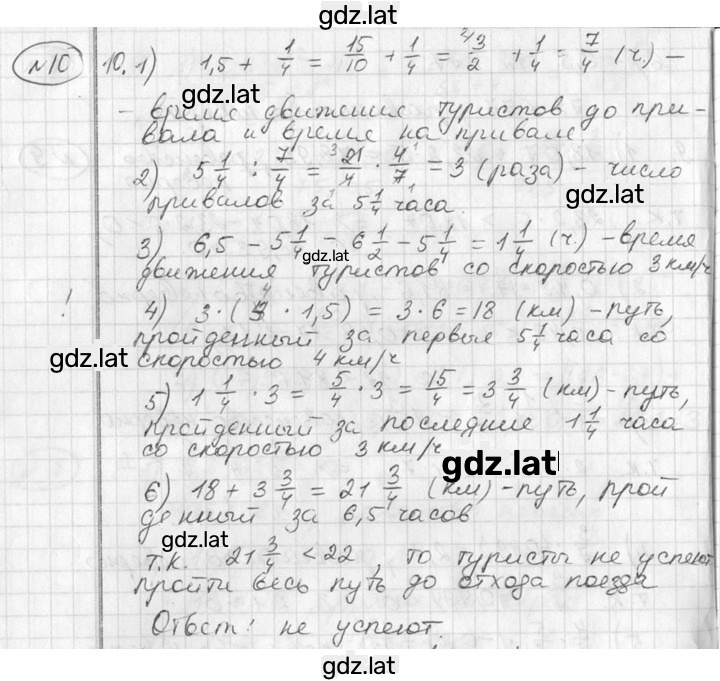 gdz.lat
№10 10. 1) 1,5 + 1/4 = 15/10 + 1/4 = 3/2 + 1/4 = 7/4 (ч) –
gdz.lat
– время движения туристов до при-
вала и время на привале
2) 5 1/4 : 7/4 = 21/4 · 4/7 = 3 (раза) – число
gdz.lat
привалов за 5 1/4 часа.
3) 6,5 – 5 1/4 = 6 1/2 – 5 1/4 = 1 1/4 (ч) – время
gdz.lat
движения туристов со скоростью 3 км/ч
! 4) 3 · (4 · 1,5) = 3 · 6 = 18 (км) – путь,
пройденный за первые 5 1/4 часа со
gdz.lat
скоростью 4 км/ч
5) 1 1/4 · 3 = 5/4 · 3 = 15/4 = 3 3/4 (км) – путь,
gdz.lat
пройденный за последние 1 1/4 часа
со скоростью 3 км/ч
gdz.lat
6) 18 + 3 3/4 = 21 3/4 (км) – путь, прой
денный за 6,5 часов
gdz.lat
т.к. 21 3/4 < 22, то туристы не успеют
пройти весь путь до отхода поезда
Ответ: не успеют.
gdz.lat